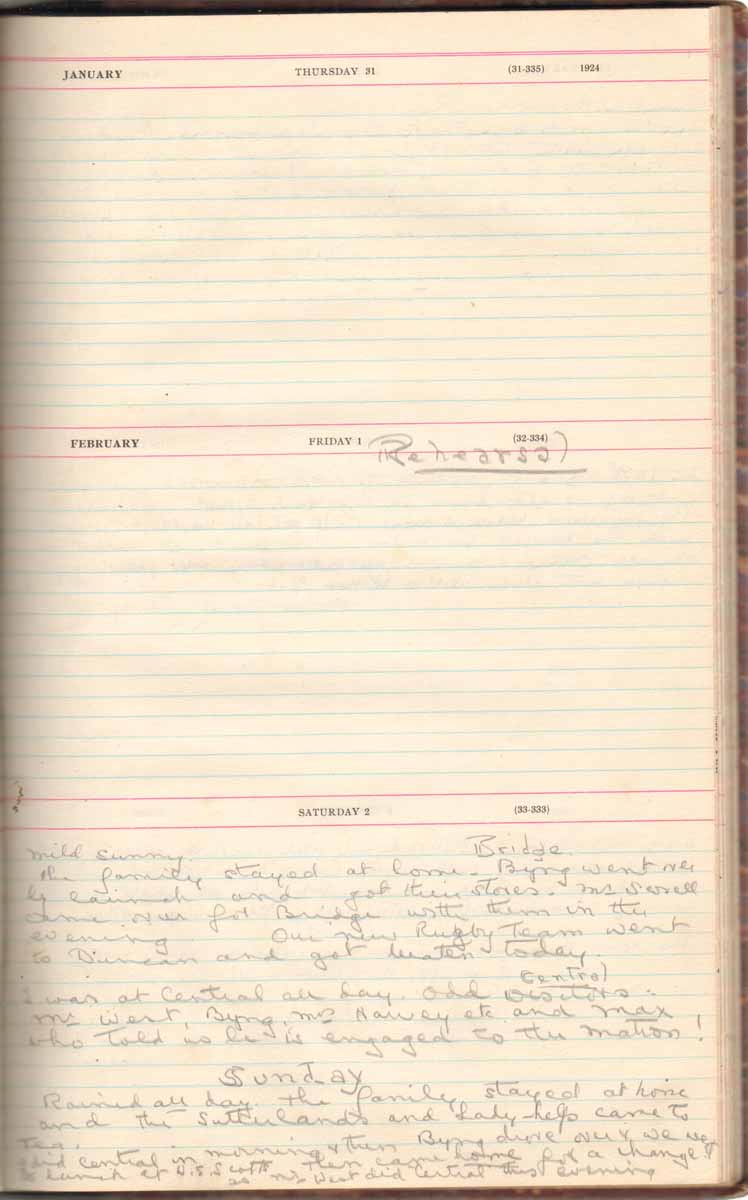 JANUARY THURSDAY 31 (31-335) 1924
FEBRUARY FRIDAY 1 (32-334)
(Rehearsal)
SATURDAY 2 (33-333)
mild sunny. Bridge.
the family stayed at home - Byng went over
by launch and got their stores. Mr
came over for Bridge with them in the
evening Our new Rugby Team went
to Duncan and got beaten today.
Central
I was at Central all day. Odd visitors:
Mr West, Byng, Mrs Harvey etc and Max
who told us he is engaged to the matron!
Sunday
Rained all day. the family stayed at home
and the Sutherlands and Lady-help came to
tea. Byng drove over & we
did central in morning & then came home for a change!
to lunch at W.S.Scotts as Mr West did Central this evening